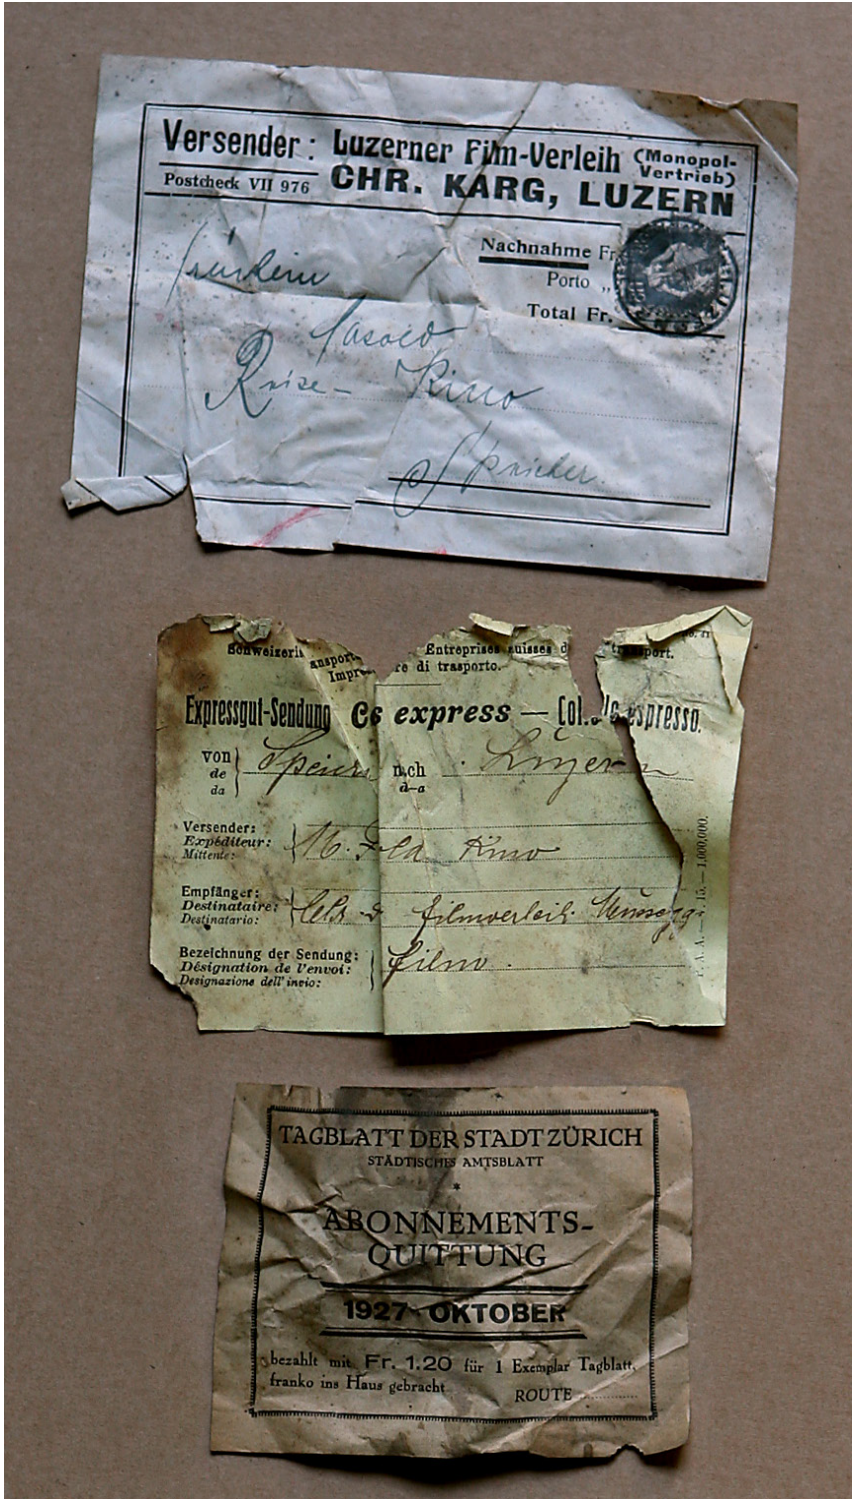 Versender: Luzerner Film-Verleih (Monopol-Vertrieb)
Postcheck VII 976 CHR. KARG, LUZERN
Nachnahme Fr
Porto „
Total Fr.
Reise- Kino
Speicher.
Schweizeris ansport Entreprises suisses d transport.
Impr re di trasporto.
Expressgut-Sendung express — Col espresso.
von nach Luzern
de
da d-a
Versender:
Expéditeur: Kino
Mittente:
Empfänger:
Destinataire: Filmverleih
Destinatario:
Bezeichnung der Sendung:
Désignation de l'envoi: film.
Designazione dell' invio:
15. — 1,000,000.
TAGBLATT DER STADT ZÜRICH
STÄDTISCHES AMTSBLATT
*
ABONNEMENTS-
QUITTUNG
1927 OKTOBER
bezahlt mit Fr. 1.20 für 1 Exemplar Tagblatt,
franko ins Haus gebracht
ROUTE